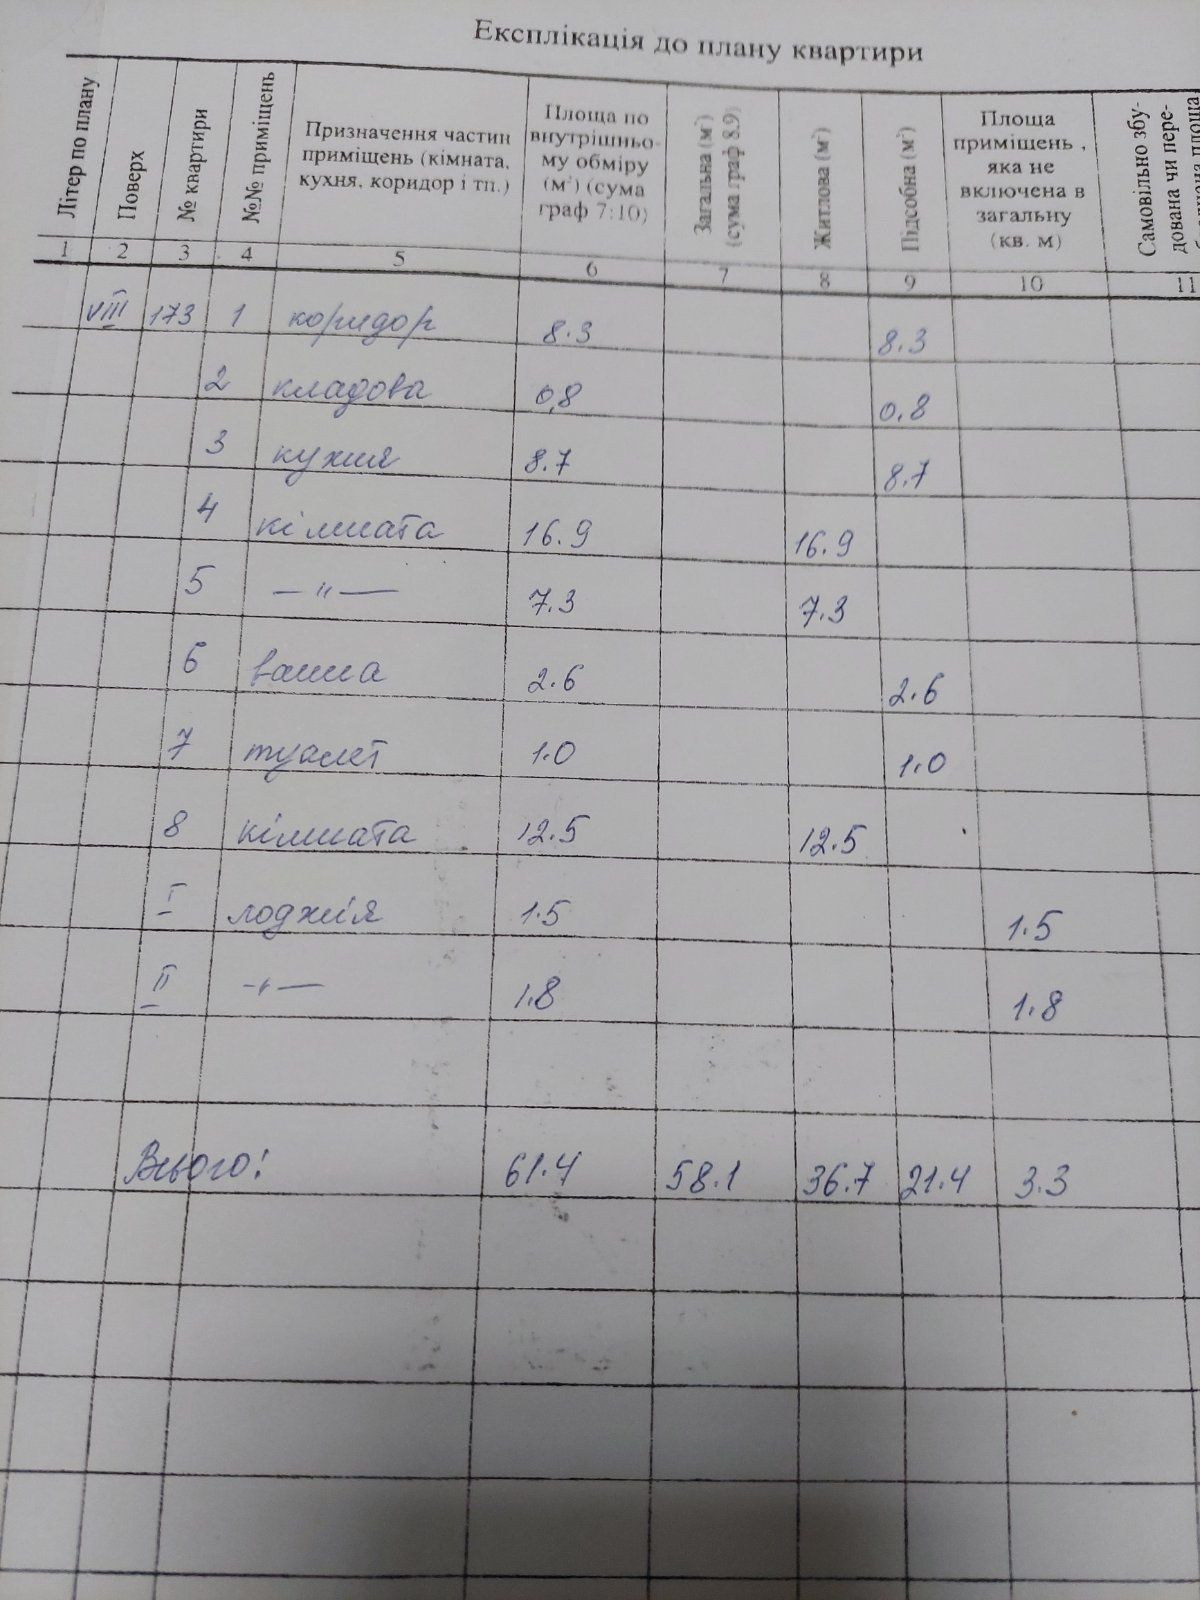 Експлікація до плану квартири
Літер по плану
Поверх
№ квартири
№№ приміщень
Призначення частин приміщень (кімната, кухня, коридор і тп.)
Площа по внутрішньо-му обміру (м²) (сума граф 7:10)
Загальна (м²) (сума граф 8.9)
Житлова (м²)
Підсобна (м²)
Площа приміщень , яка не включена в загальну (кв. м)
Самовільно збу-дована чи пере-
1 2 3 4 5 6 7 8 9 10 11
VIII 173 1 коридор 8.3 8.3
2 кладова 0,8 0.8
3 кухня 8.7 8.7
4 кімната 16.9 16.9
5 —"— 7.3 7.3
6 ванна 2.6 2.6
7 туалет 1.0 1.0
8 кімната 12.5 12.5
I лоджія 1.5 1.5
II —"— 1.8 1.8
Всього: 61.4 58.1 36.7 21.4 3.3